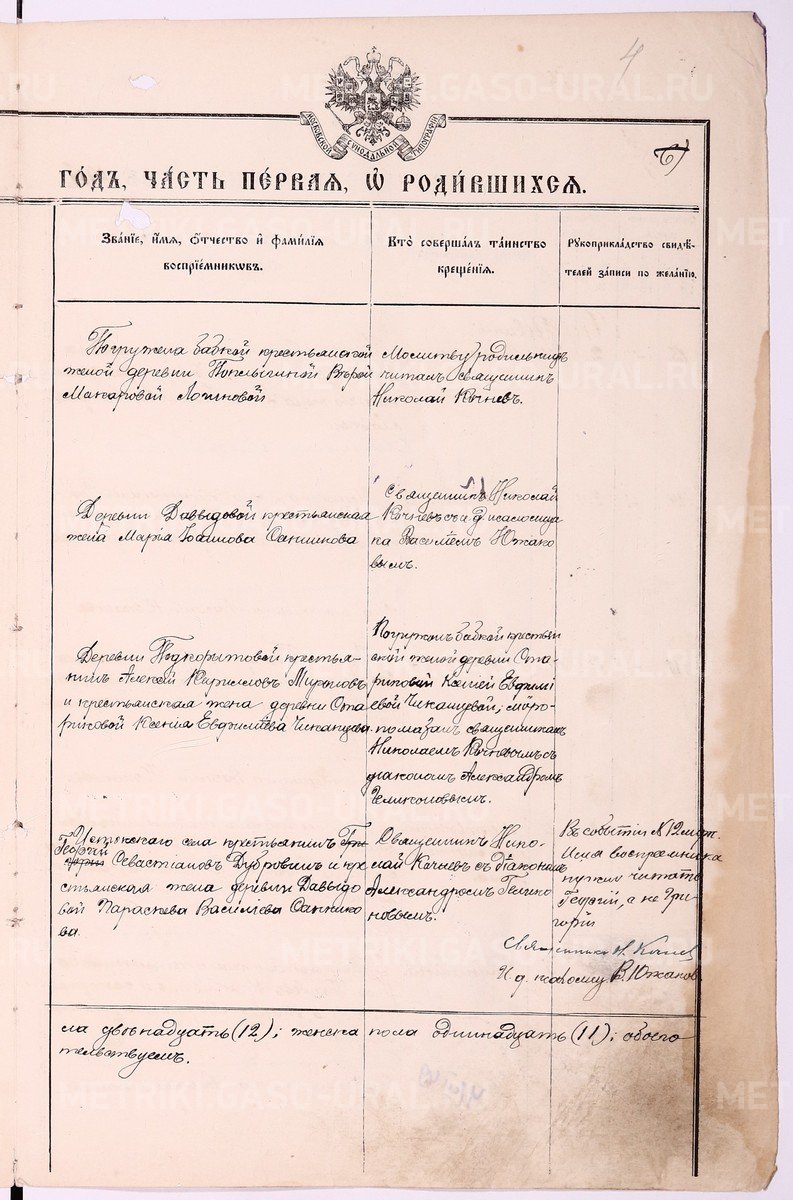 4
6)
МОСКОВСКОЙ СУНОДАЛЬНОЙ ТИПОГРАФІИ
ГОДЪ, ЧАСТЬ ПЕРВАЯ, Ѡ РОДИВШИХСЯ.
Званіе, имя, отчество и фамилія
воспріемниковъ.
Кто совершалъ таинство
крещенія.
Рукоприкладство свидѣ-
телей записи по желанію.
Погружена бабкой крестьянской
женой деревни Вѣрой
Макаровой Логиновой
Молитву родильницѣ
читалъ священникъ
Николай Кочневъ.
Деревни Давыдовой крестьянская
жена Марія Санникова
Священникъ Николай
Кочневъ съ и. д. псаломщи
ка Василіемъ Южако
вымъ.
Деревни Подкорытовой крестья-
нинъ Алексѣй Кирилловъ Мироновъ
и крестьянская жена деревни Ота-
риковой Ксенія Евфиміева
Погружонъ бабкой крестьян
ской женой деревни Ота-
риковой Ксеніей Евфимі
евой; мѵро-
помазанъ священникомъ
Николаемъ Кочневымъ съ
діакономъ Александромъ
Геликоновымъ.
Истокскаго села крестьянинъ Гри
Георгій
горій Севастіановъ Дубровинъ и кре
стьянская жена деревни Давыдо
вой Параскева Василіева Саннико
ва.
Священникъ Нико-
лай Кочневъ съ діакономъ
Александромъ Гелико
новымъ.
Въ событіи № 12 муж.
Имя воспреемника
нужно читать
Георгій, а не Гри-
горій
Священникъ Н. Кочневъ
И. д. псаломщ. В. Южаковъ
ла двѣнадцать (12); женска пола одиннадцать (11); обоего
тельствуемъ.
METRIKI.GASO-URAL.RU